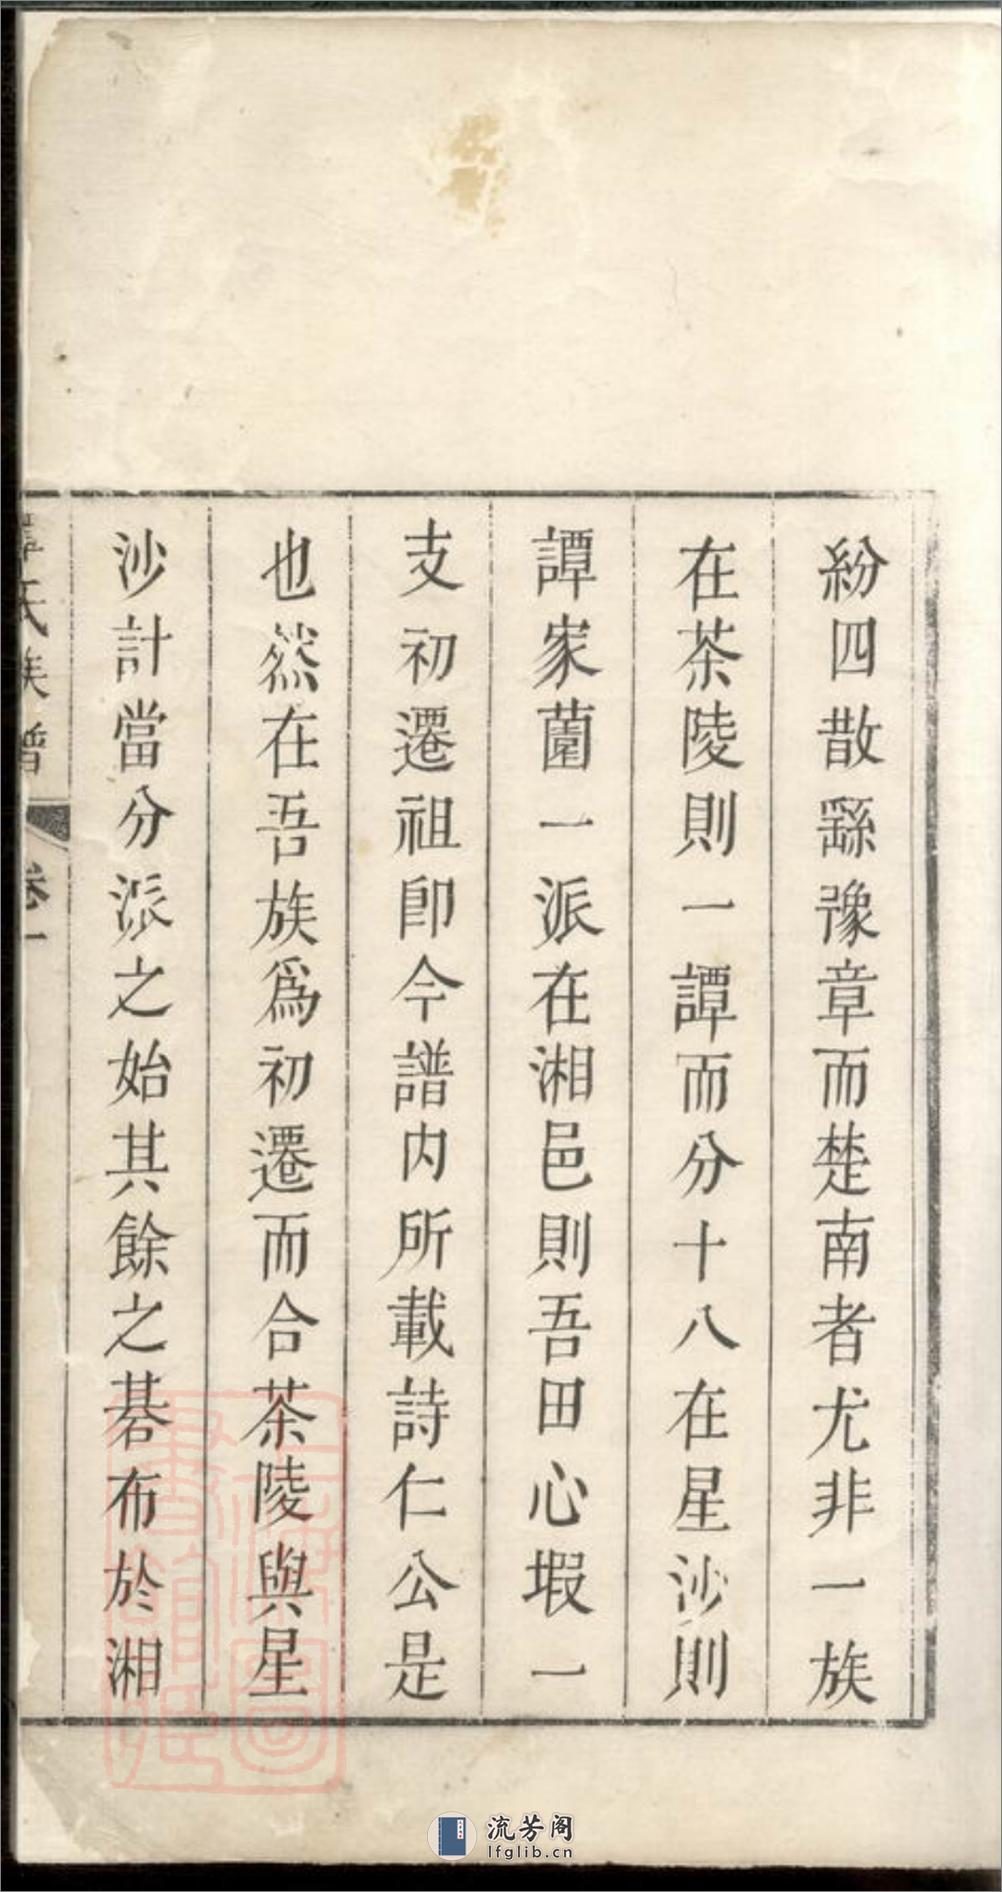 紛四散繇豫章而楚南者尤非一族
在茶陵則一譚而分十八在星沙則
譚家薗一派在湘邑則吾田心塅一
支初遷祖卽今譜内所載詩仁公是
也然在吾族爲初遷而合茶陵與星
沙計當分派之始其餘之碁布於湘
氏族譜
卷一
上海圖書館藏
流芳阁
lfglib.cn